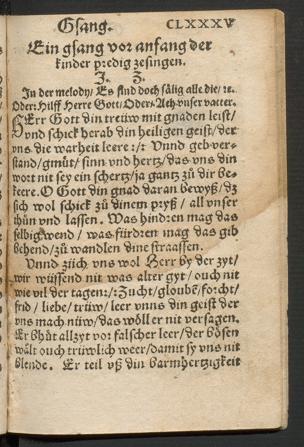 Gsang. CLXXXV
Ein gsang vor anfang der
kinder predig zesingen.
J. Z.
In der melody/ Es sind doch sälig alle die/ ꝛc.
Oder: Hilff Herre Gott/ Oder: Ach vnser vatter.
HErr Gott din trüw mit gnaden leist/
vnd schick herab din heiligen geist/ der
vns die warheit leere :/: Vnnd geb ver-
stand/ gmüt/ sinn vnd hertz/ das vns din
wort nit sey ein schertz/ ja gantz zů dir be-
keere. O Gott din gnad daran bewyß/ dz
sich wol schick zů dinem pryß / all vnser
thůn vnd lassen. Was hindren mag das
selbig wend / was fürdren mag das gib
behend/ zů wandlen dine straassen.
Vnnd züch vns wol Herr by der zyt/
wir wüssend nit was alter gyt / ouch nit
wie vil der tagen :/: Zucht/ gloubē/ forcht/
frid / liebe/ trüw/ leer vnns din geist der
vns mach nüw/ das wöll er nit versagen.
Er bhüt allzyt vor falscher leer/ der bösen
wält ouch trüwlich weer/ damit sy vns nit
blende. Er teil vß din barmhertzigkeit